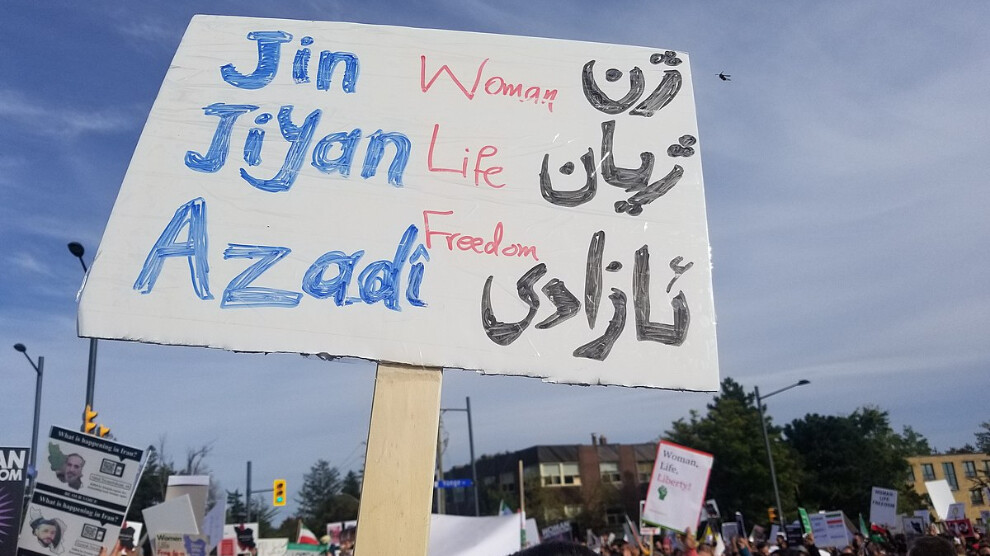 Jin Woman ژن
Jiyan Life ژیان
Azadî Freedom ئازادی
What is happening in Iran?
What is happening in Iran?
Woman,
Life,
Liberty!
WOMAN
LIFE
FREEDOM
Yonge
Women